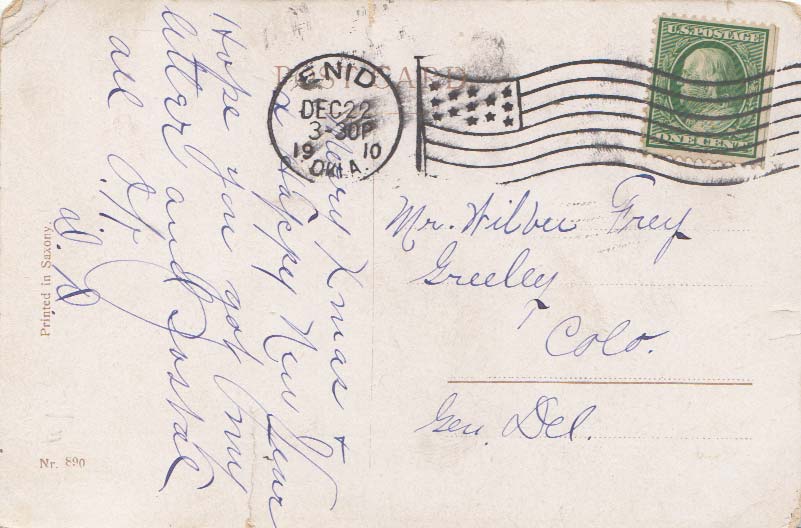 POST CARD
ENID
DEC 22
3-30P
1910
OKLA.
U.S. POSTAGE
ONE CENT
Merry Xmas &
a Happy New Year
Hope you got my
letter and Postal
all
Mr. Wilber Frey
Greeley,
Colo.
Gen. Del.
Printed in Saxony.
Nr. 890